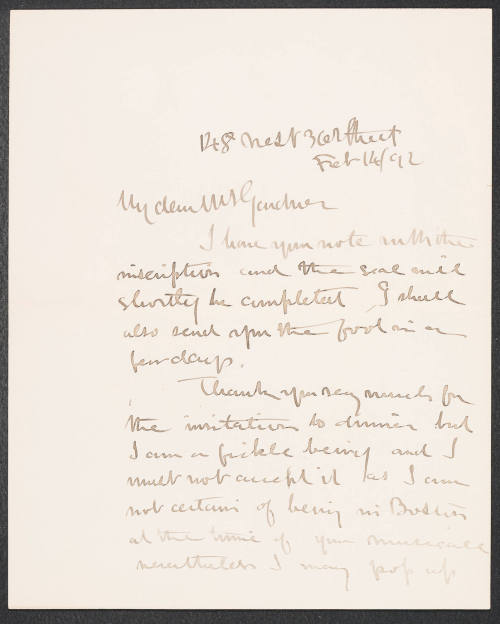 148 West 36th Street
Feb 14/92
My dear Mrs Gardner
I have your note with the
inscription and the seal will
shortly be completed I shall
also send you the in a
few days.
Thank you very much for
the invitation to dinner but
I am a fickle being and I
must not accept it as I am
not certain of being in Boston
at the time of your musicale
nevertheless I may pop up